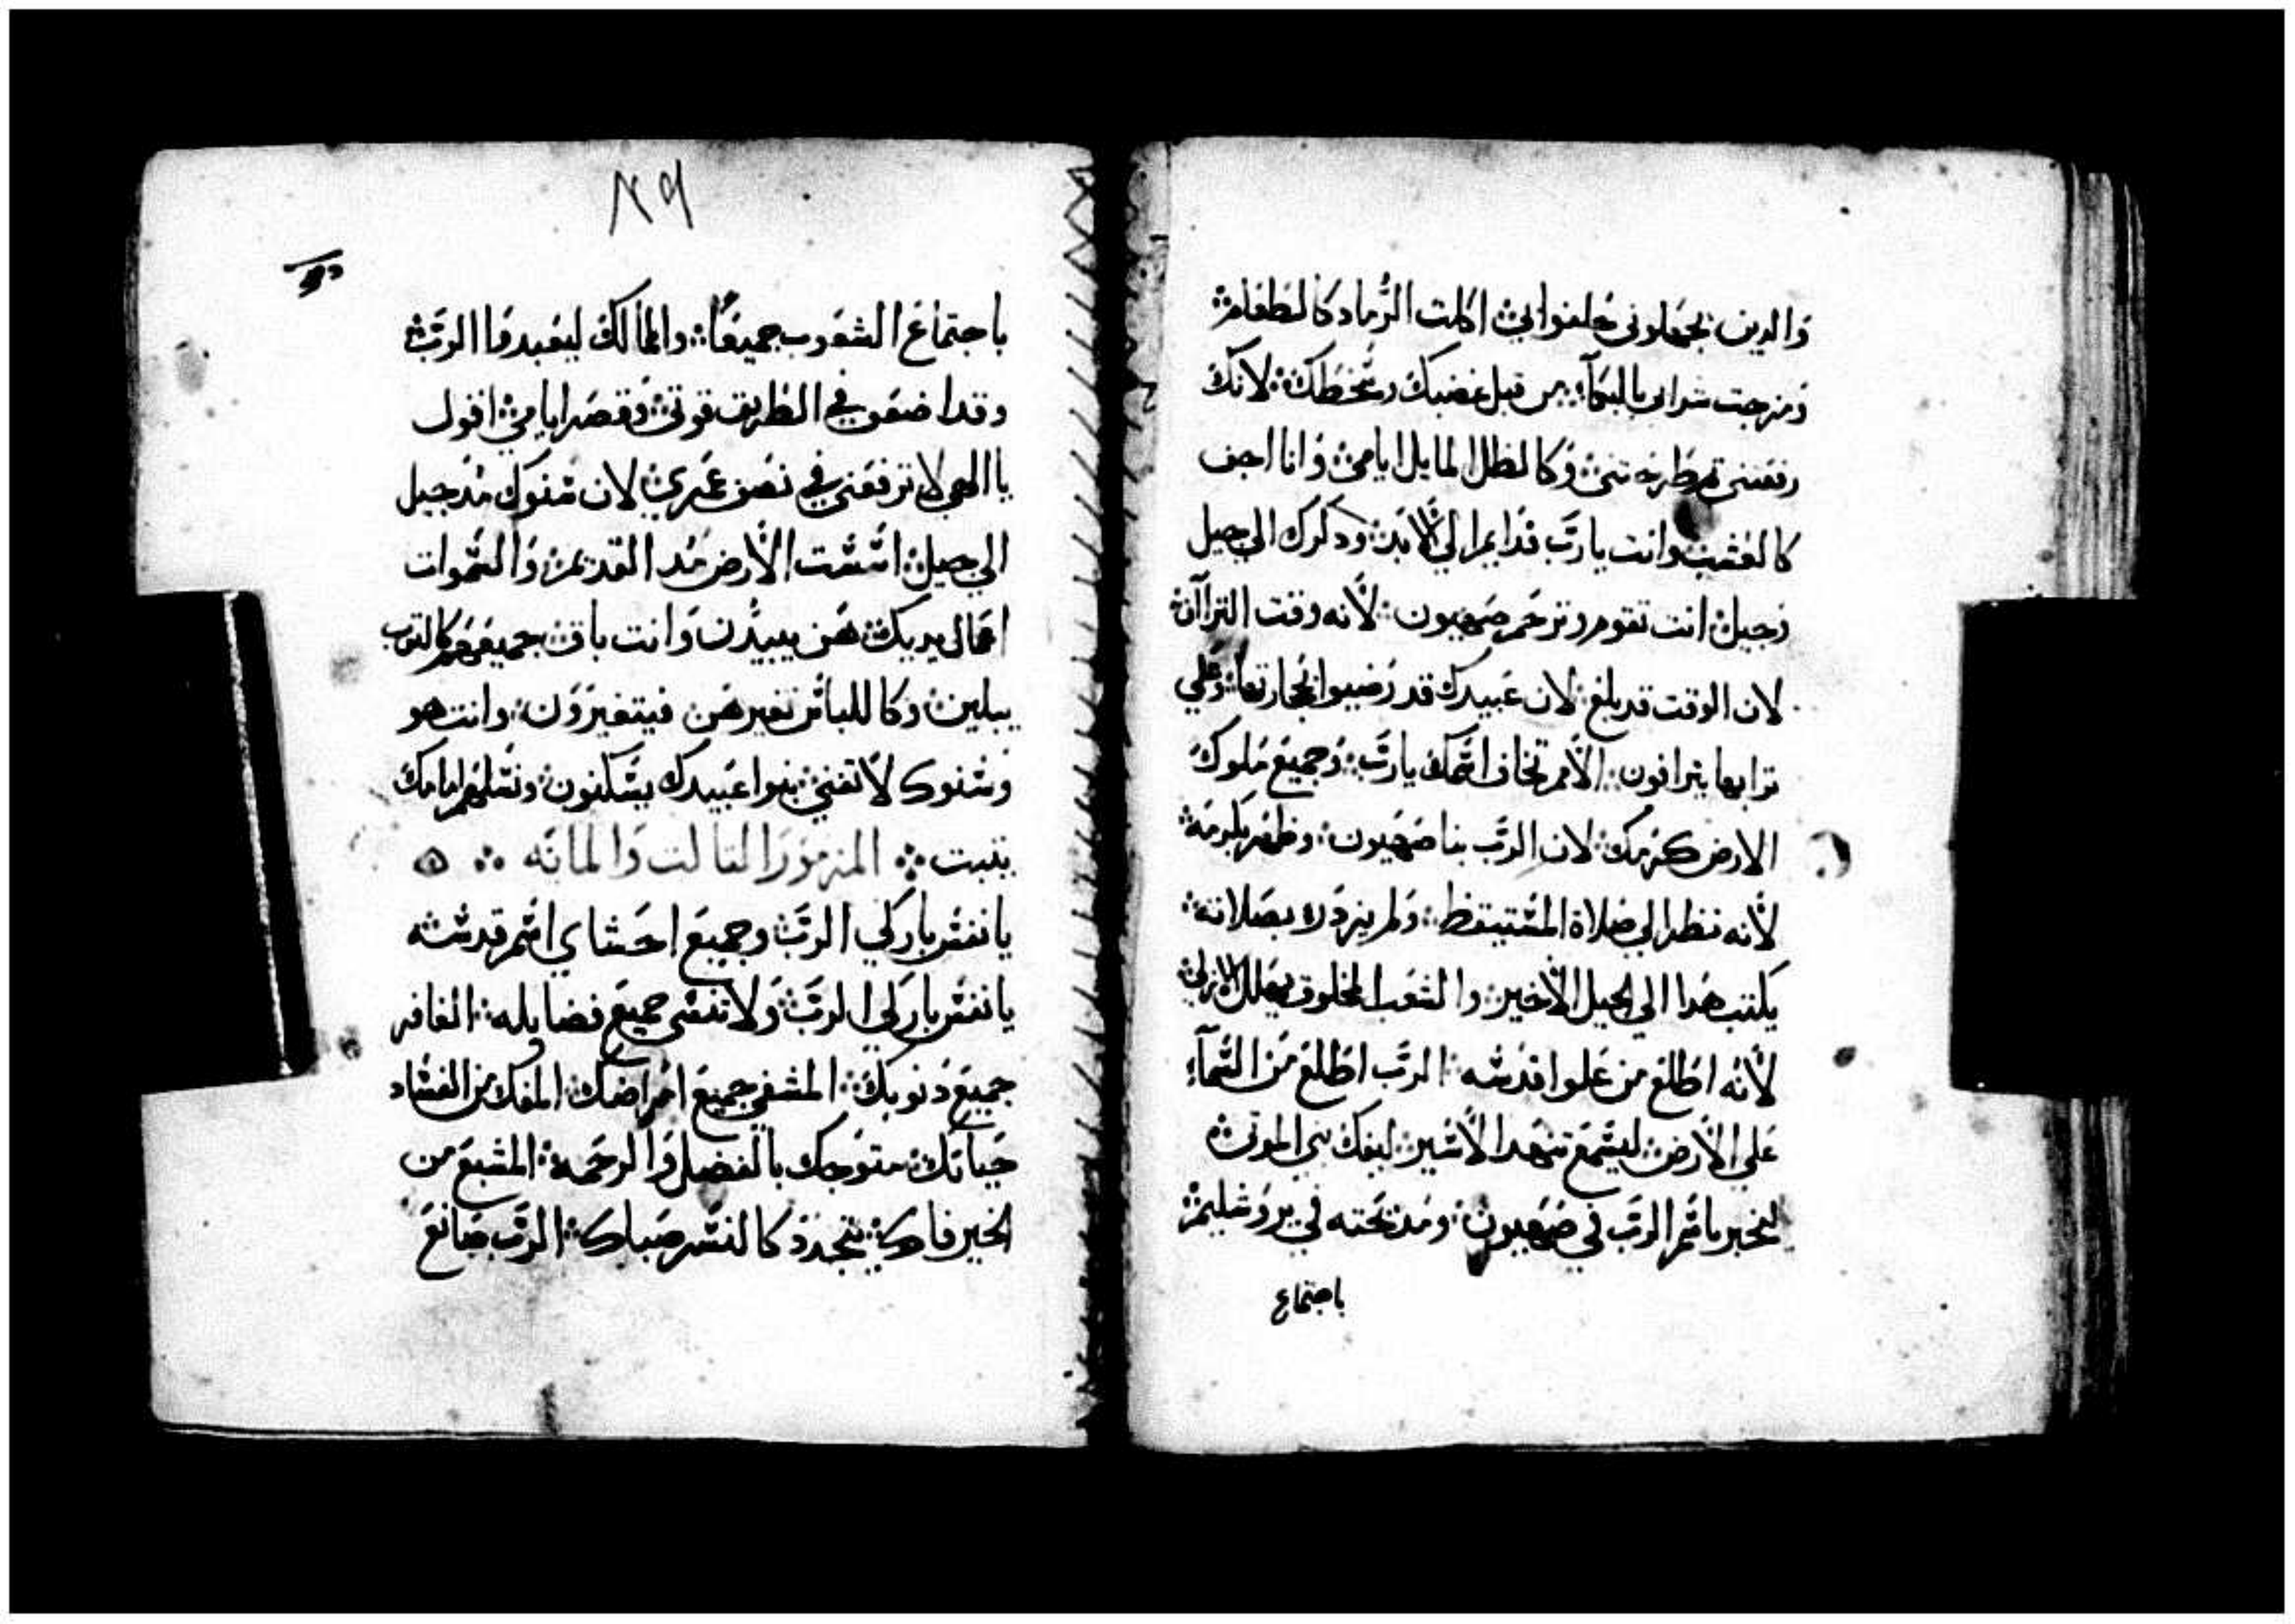 والدين يجهلوني حلفوا بي ٪ اكلت الرماد كالطعام ٪
ومزجت شرابي بالبكآء ٪ من قبل غضبك وسخطك ٪ لانك
رفعتني وطرحتني ٪ وكالظل المايل ايامي ٪ وانا اجف
كالعشب وانت يا رب فدايم الي الابد ٪ ودكرك الي جيل
وجيل ٪ انت تقوم وترحم صهيون ٪ لانه وقت التراآف
لان الوقت قد بلغ ٪ لان عبيدك قد رضيوا بحجارتها ٪ وعلي
ترابها يترافون ٪ الامم تخاف اسمك يا رب ٪ وجميع ملوك
الارض كرمك ٪ لان الرب بنا صهيون ٪ وظهر بكرمه ٪
لانه نظر الي صلاة المستيقظ ٪ ولم يزدره بصلاته ٪
يكتب هدا الي الجيل الاخير ٪ والشعب المخلوق يهلل
لانه اطلع من علوا قدسه ٪ الرب اطلع من السمآء
علي الارض ٪ ليسمع تنهد الاسير ٪ ليفك بني الموتي ٪
ليخبر باسم الرب في صهيون ٪ ومدبحته في يروشليم ٪
باجتماع
٨٩
باجتماع الشعوب جميعًا ٪ والممالك ليعبدوا الرب ٪
وقد اضعف في الطريق قوتي ٪ وقصر ايامي ٪ اقول
يا الهي لا ترفعني في نصف عمري ٪ لان سنوك مند جيل
الي جيل ٪ اسست الارض مند القديم ٪ والسموات
اعمال يديك ٪ هن يبيدن وانت باق ٪ جميعهم كالتوب
يبلين ٪ وكاللباس تغيرهن فيتغيرون ٪ وانت هو
وسنوك لا تفني ٪ بنوا عبيدك يسكنون ٪ ونسلهم امامك
يتبت ٪ المزمور التالت والمايه ٪
يا نفس باركي الرب ٪ وجميع احشاي اسم قدسه
يا نفس باركي الرب ٪ ولا تنسي جميع فضايله ٪ الغافر
جميع دنوبك ٪ المشفي جميع امراضك ٪ المفك من الفساد
حياتك ٪ متوجك بالفضل والرحمه ٪ المشبع من
الخير فاك ٪ يتجدد كالنسر صباك ٪ الرب صانع